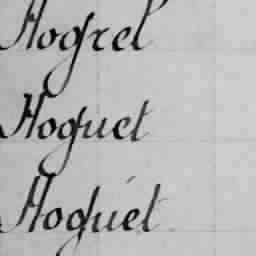 Hogrel
Hoguet
Hoguét